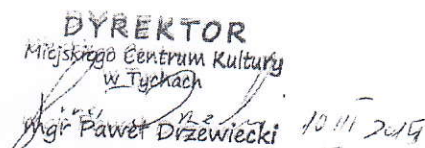 DYREKTOR
Miejskiego Centrum Kultury
w Tychach
mgr Paweł Drzewiecki 10 III